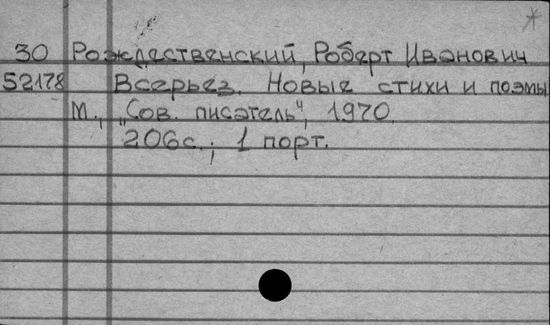 30 Рождественский, Роберт Иванович
52178 Всерьез. Новые стихи и поэмы
М., „Сов. писатель", 1970.
206с.; 1 порт.